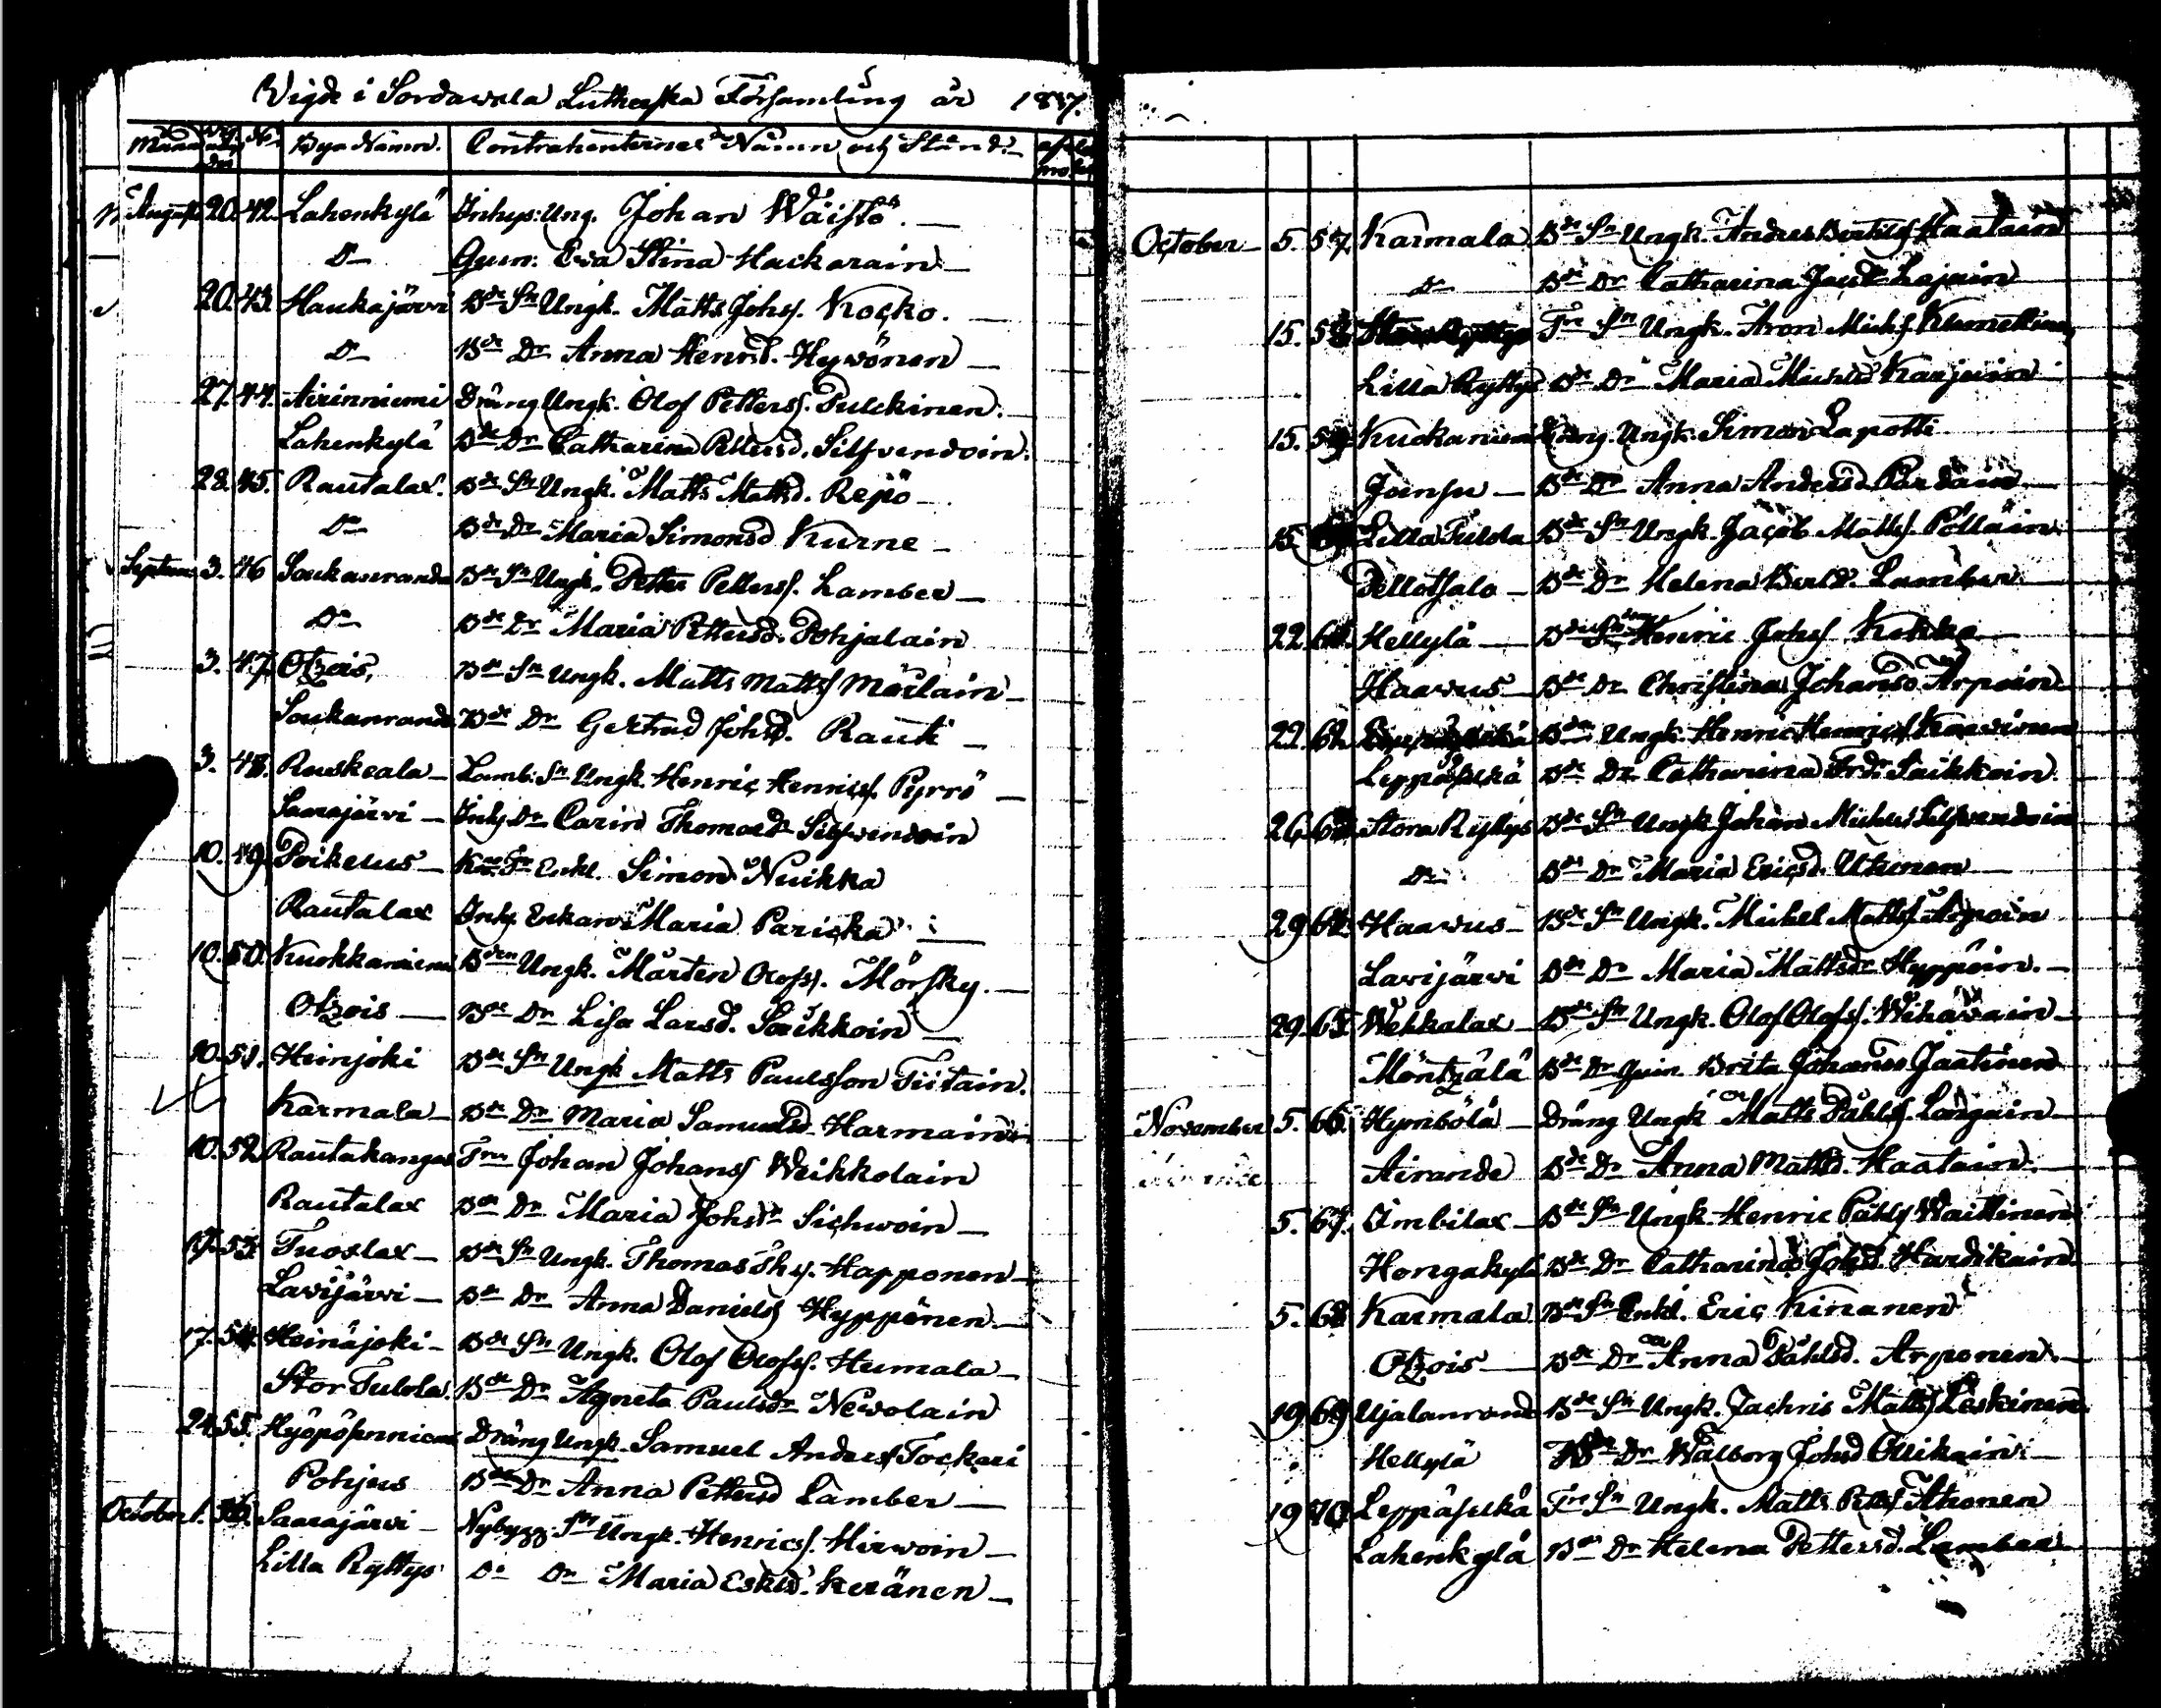 Vigde i Sordawala Lutherska Församling år 1837.
Månad Dag No. Bya Namn. Contrahenternes Namn och Stånd.
August 20. 42. Lahenkylä Inhys: Ung. Johan Wäistö. —
Do Qwn. Eva Stina Hackarain —
20. 43. Haukajärvi Bde Sn Ungk. Matts Johs. Kocko. —
Do Bde Dr Anna Henrsd. Hyvönen —
27. 44. Airinniemi Dräng Ungk. Olof Petterss. Pulckinen. —
Lahenkylä Bde Dr Catharina Pettersd. Silfvendoin.
28. 45. Rautalax. Bde Sn Ungk. Matts Mattsd. Repo —
Do Bde Dr Maria Simonsd Kurne —
Septem 3. 46 Soukanranda Bde Sn Ungk. Petter Petterss. Lamber —
Do Bde Dr Maria Pettersd. Pohjalain
3. 47. Otzois, Bde Sn Ungk. Matts Mattss Möilain —
Soukanranda Bde Dr Gertrud Johsd. Rauti —
3. 48. Ruskeala — Lamb: Sn Ungk Henric Henricss. Pyrrö —
Saarajärvi — Inhs Dr Carin Thomasdr Silfvendoin
10. 49. Poikelus — Enkl. Simon Nuikka
Rautalax Inhs. Enkan Maria Pariska —
10. 50. Kuokkaniemi Bden Ungk. Mårten Olofss. Mörsky. —
Otzois — Bde Dr Lisa Larsd. Saikkoin —
10. 51. Heinjoki Bde Sn Ungk Matts Paulsson Tiitain.
Karmala — Bde Dr Maria Samuelsd Harmain
10. 52. Rautakangas Johan Johanss Weikkolain
Rautalax Bde Dr Maria Johsdr Sichwoin —
17. 53. Tuoslax — Bde Sn Ungk. Thomas Ths. Happonen —
Lavijärvi — Bde Dr Anna Daniels Hyppönen. —
17. 54. Heinäjoki — Bde Sn Ungk. Olof Olofss. Humala —
Stor Tulola. Bde Dr Agneta Paulsdr Newolain
24. 55. Hyöpösenniemi Dräng Ungk. Samuel Anderss Tockari
Pohjus Bde Dr Anna Pettersd Lamber —
October 1. 56. Saarajärvi — Nybygg: Sn Ungk. Henricss. Hirwoin —
Lilla Ryttys Do Dr Maria Eskilsd. Keränen —
October — 5. 57. Karmala Bde Sn Ungk. Anders Bertils Haatain
Do Bde Dr Catharina Lajain
15. 58. Sn Ungk. Aron Michs.
Lilla Ryttys Bde Dr Maria Michelsd Karjain —
15. 59. Kuckaniemi Dräng Ungk. Simon Lapotti
Joensu — Bde Dr Anna Andersd Pärdäin —
15. Lilla Tulola Bde Sn Ungk. Jacob Mattss. Pölläin
Pellotsalo — Bde Dr Helena Lamber. —
22. 61. Hellylä — Henric Johss Kukka —
Haavus — Bde Dr Christina Johansd Arpoin
22. 62. Bden Ungk. Henric Henricss
Leppäselkä Bde Dr Catharina Saikkoin.
26. 63. Stora Ryttys Bde Sn Ungk Johan Michels Silfvendoin
Do Bde Dr Maria Ericsd. Utunen —
29. 64. Haavus — Bde Sn Ungk. Michel Mattss Arpoin
Lavijärvi Bde Dr Maria Mattsdr Hyppöin. —
29. 65. Wekkalax — Bde Sn Ungk. Olof Olofss. Wihavain —
Möntzälä Bde Dr Brita Johansd Jaatinen
November 5. 66. Hymbölä — Dräng Ungk Matts Påhlss. Langain —
Airanda Bde Dr Anna Mattsd. Haatain. —
5. 67. Imbilax — Bde Sn Ungk. Henric Påhlss Waittinen
Hongakylä Bde Dr Catharina Johsd. Hardikain
5. 68. Karmala Bde Sn Enkl. Eric Kinanen
Otzois — Bde Dr Anna Påhlsd. Arponen. —
19. 69. Ujalanranda Bde Sn Ungk. Zachris Mattss Leskinen.
Hellylä Bde Dr Walborg Johsd Ollikain —
19. 70. Leppäselkä Sn Ungk. Matts Petss Ahonen
Lahenkylä Bde Dr Helena Pettersd. Lamber